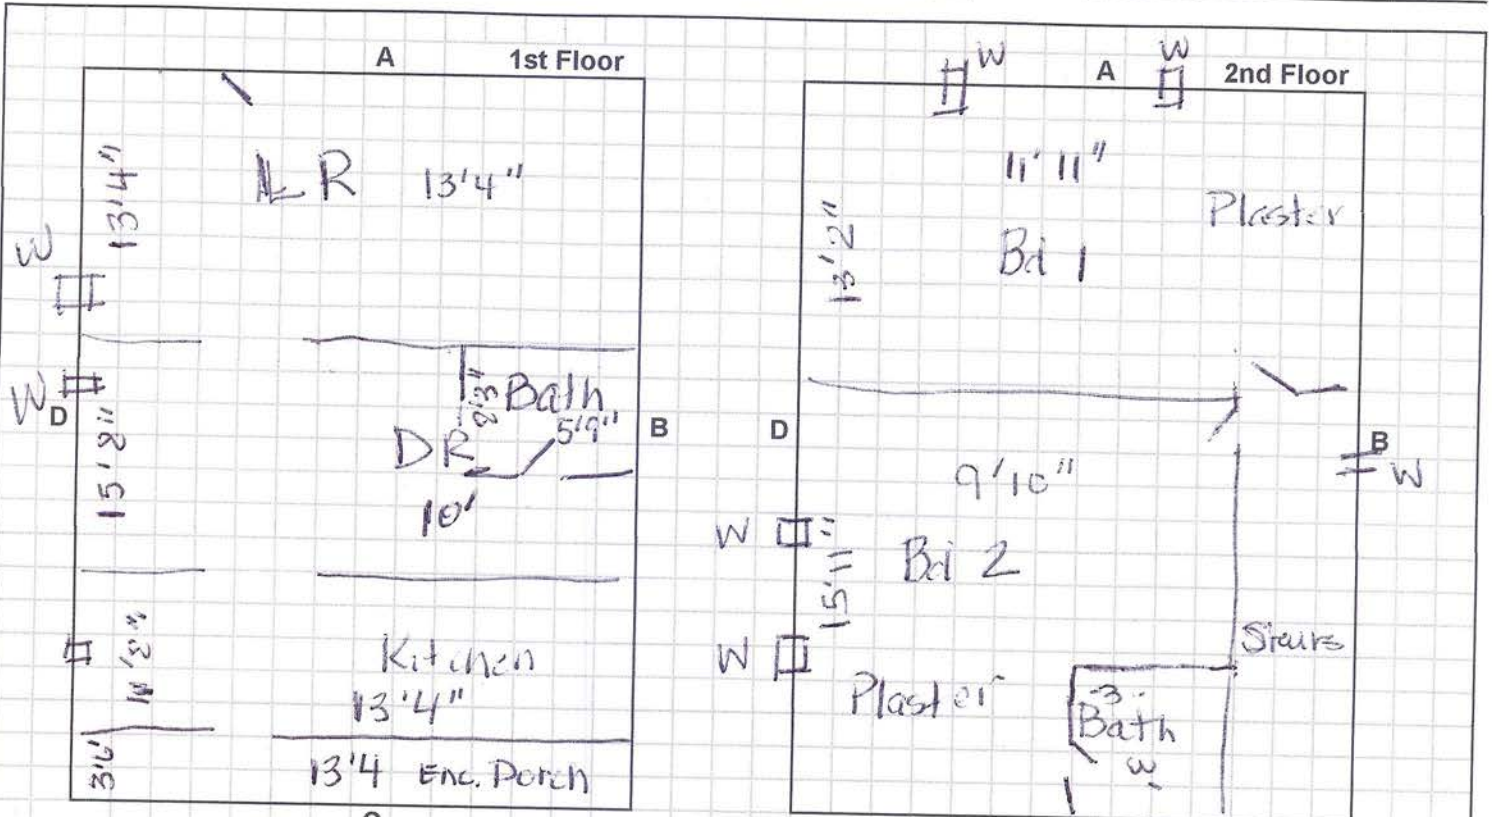 A 1st Floor
13'4"
LR 13'4"
W
W
D
15'2"
2'3" Bath
5'9"
DR
10'
B
Kitchen
13'4"
3'6'
13'4 Enc. Porch
W
A
W
2nd Floor
11' 11"
Plaster
13'2"
Bd 1
D
B
W
9'10"
W
15'11"
Bd 2
W
Stairs
Plaster
3
Bath
3'